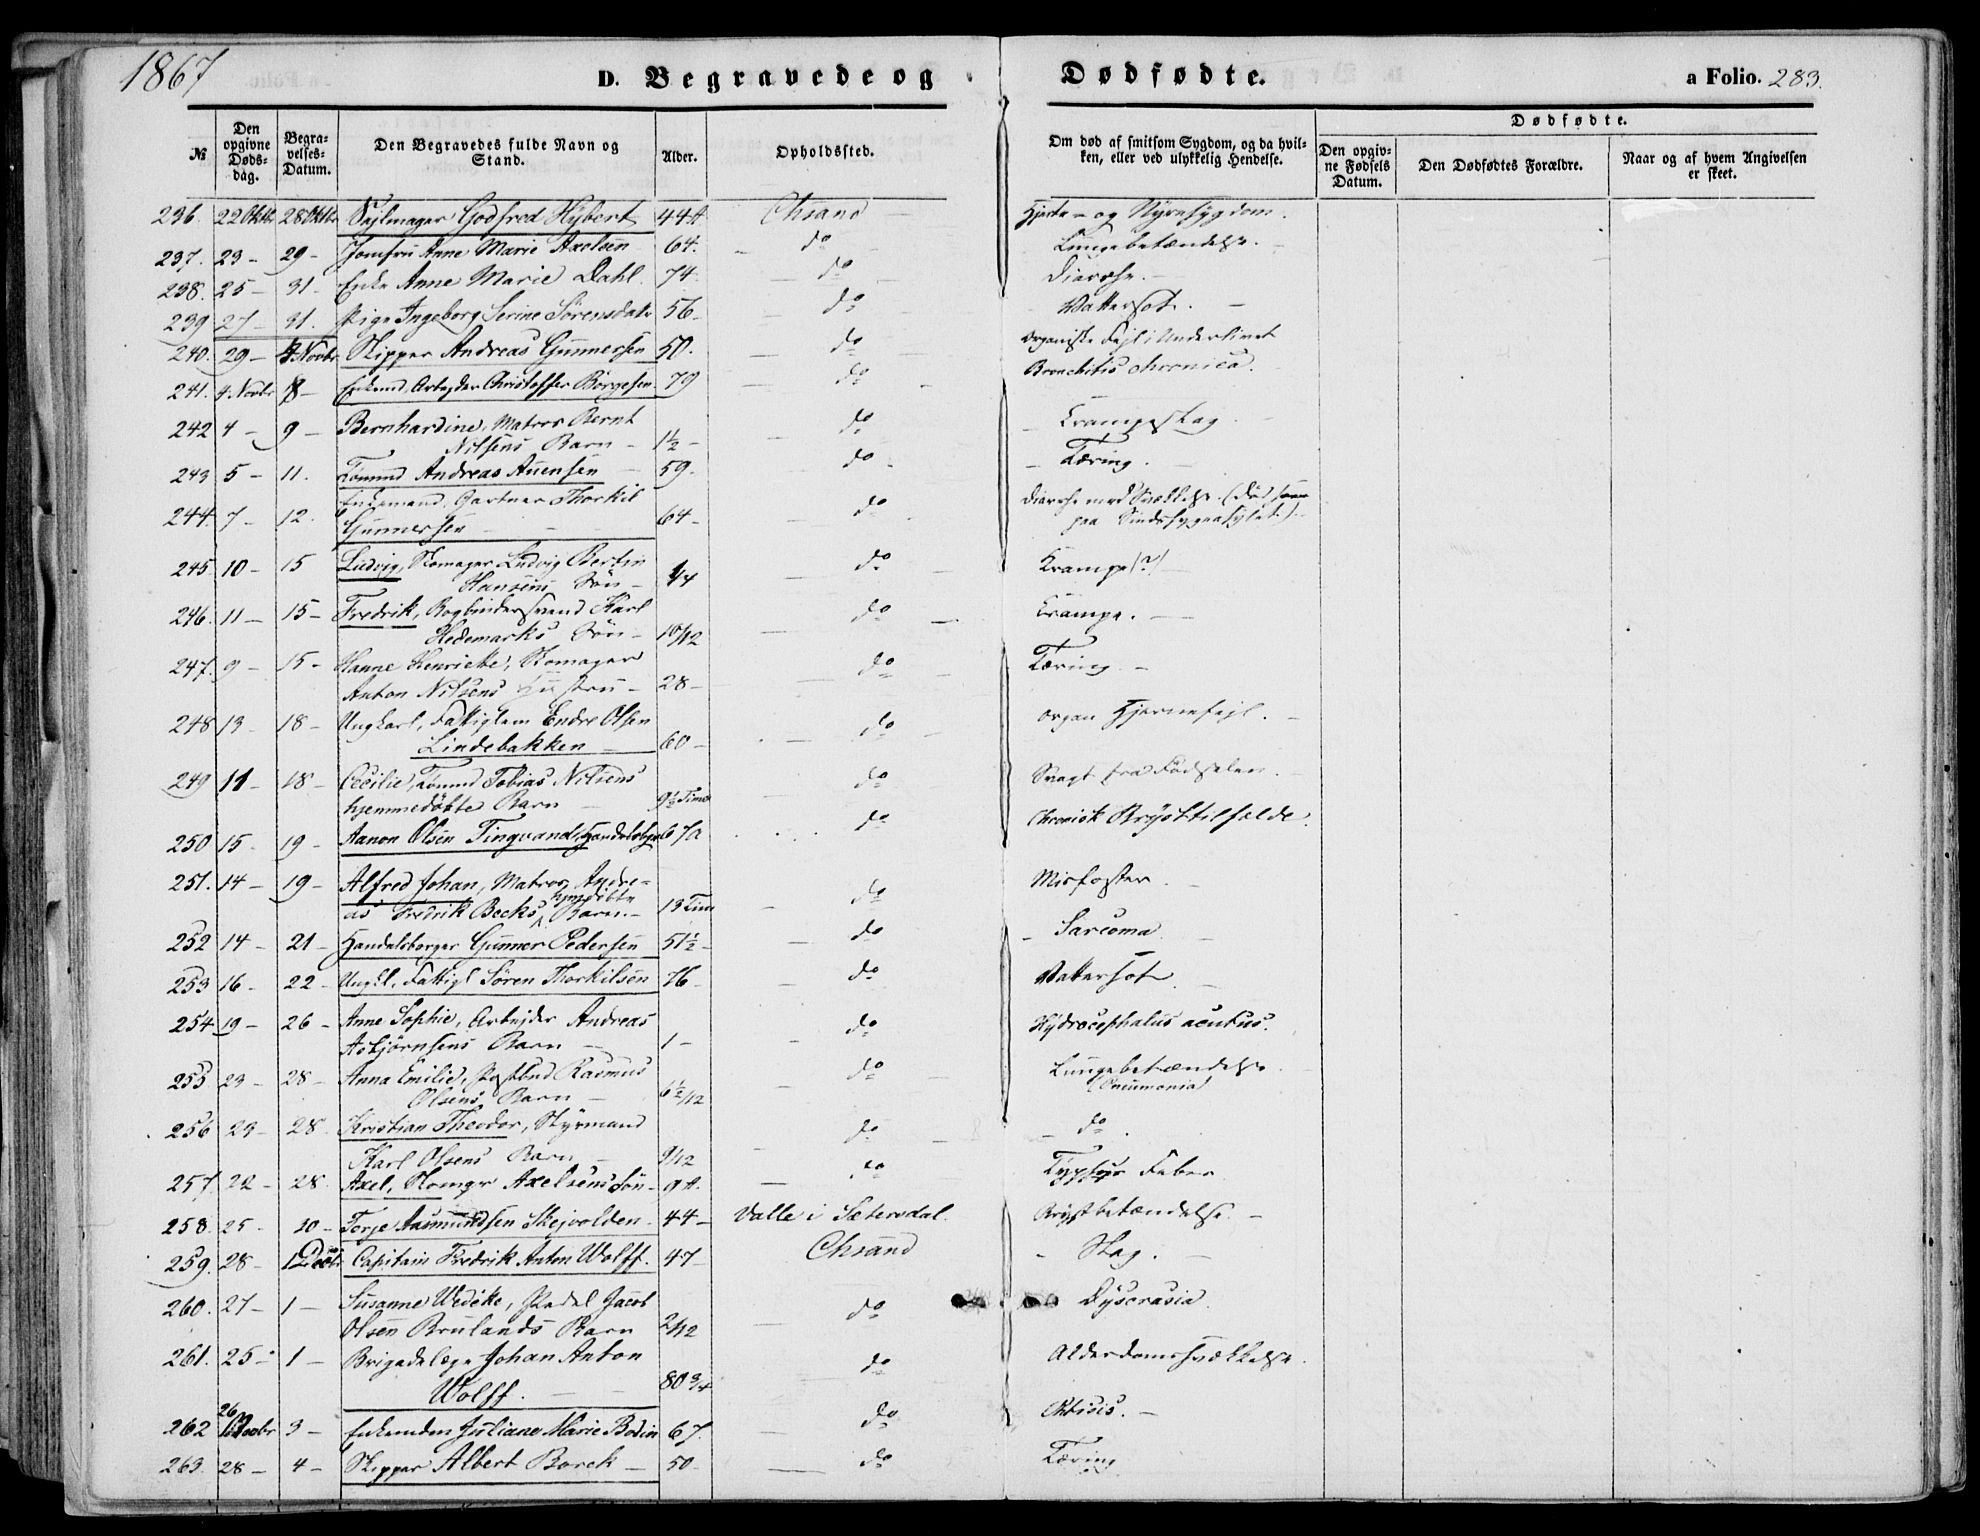 1867
D. Begravede og Dødfødte. a Folio. 283.
Dødfødte.
№ Den opgivne Døds-dag. Begra-velses-Datum. Den Begravedes fulde Navn og Stand. Alder. Opholdssted. Om død af smitsom Sygdom, og da hvil-ken, eller ved ulykkelig Hendelse. Den opgiv-ne Fødsels Datum. Den Dødfødtes Forældre. Naar og af hvem Angivelsen er skeet.
236. 22 Oktbr 28 Oktbr Sejlmager Godfred Hybert 44 A Chsand Hjerte- og Nyresygdom.
237. 23 - 29 - Jomfru Anne Marie Axelsen 64. do Lungebetændelse.
238. 25 - 31 - Enke Anne Marie Dahl. 74. do Diarrhe.
239 27 - 31. Pige Ingeborg Serine Sørensdatr 56 - do Vattersot.
240. 29 - 4 Novbr Skipper Andreas Gunnersen 50. do Organisk Fejl i Underlivet
241. 4 Novbr 8 - Enkemd. Arbejder Christoffer Börgesen. 79 do Bronchitis chronica.
242 4 - 9 - Bernhardine, Matros Bernt
Nilsens Barn - 1½ - do Krampeslag.
243 5 - 11. Tømmd Andreas Auensen 59. do Tæring.
244 7 - 12. Enkemand, Gartner Thorkil
Gunnersen 64 - do Diarrhe med Svækkelse. (Død
paa Sindssygeasylet.)
245 10 - 15 Ludvig, Skomager Ludvig Bertin
Hansens Søn - 1/4 do Krampe (?)
246. 11 - 15 - Fredrik, Bogbindersvend Karl
Hedemarks Søn - 10/12 do Krampe.
247. 9 - 15 - Hanne Henriette, Skomager
Anton Nilsens Hustru - 28 - do Tæring -
248 13 18 - Ungkarl, Fattiglem Endre Olsen
Lindebakken 60 - do organ Hjertefejl.
249 11 18 - Cecilie, Tømmd Tobias Nilsens
hjemmedøbte Barn 9½ Time do Svagt fra Fødselen.
250 15. 19 - Aanon Olsen Tingvand, Handelsborger 67 A do Chronisk Brysttilfælde.
251. 14 - 19 - Alfred Johan, Matros Andre=
as Fredrik Becks hjmdöbte Barn. 13 Tim do Misfoster.
252 14 - 21 - Handelsborger Gunner Pedersen 51½ - do Sarcoma
253 16 - 22 - Ungkl. Fattigl Sören Thorkilsen 76 - do Vattersot.
254 19 - 26 - Anne Sophie, Arbejder Andreas
Asbjörnsens Barn 1 - do Hydrocephalus acutus.
255 23 - 28 - Anna Emilie, Postbud Rasmus
Olsens Barn - 6½/12 do Lungebetændelse
(Pneumonia)
256 23 - 28. Kristian Theodor, Styrmand
Karl Olsens Barn - 9/12 do do
257. 22 - 28. Axel, Skomgr Axelsens Søn - 9 A. do Typhus Feber
258. 25 - 30 - Torje Aasmundsen Skejvolden. 44 - Valle i Sætersdal. Brystbetændelse. -
259. 28 - 1 Decbr Capitain Fredrik Anton Wolff. 47 - Chsand Slag.
260. 27 - 1 - Susanne Wedike, Pedel Jacob
Olsen Brulands Barn 2/12 do Dyscrasia.
261. 25 - 1 - Brigadelæge Johan Anton
Wolff. 80 3/4 do Alderdomssvækkelse.
262 26 Novbr 3 - Enkemden Juliane Marie Bodin 67. do Phtisis. -
263. 28 - 4 - Skipper Albert Borck 50. do Tæring